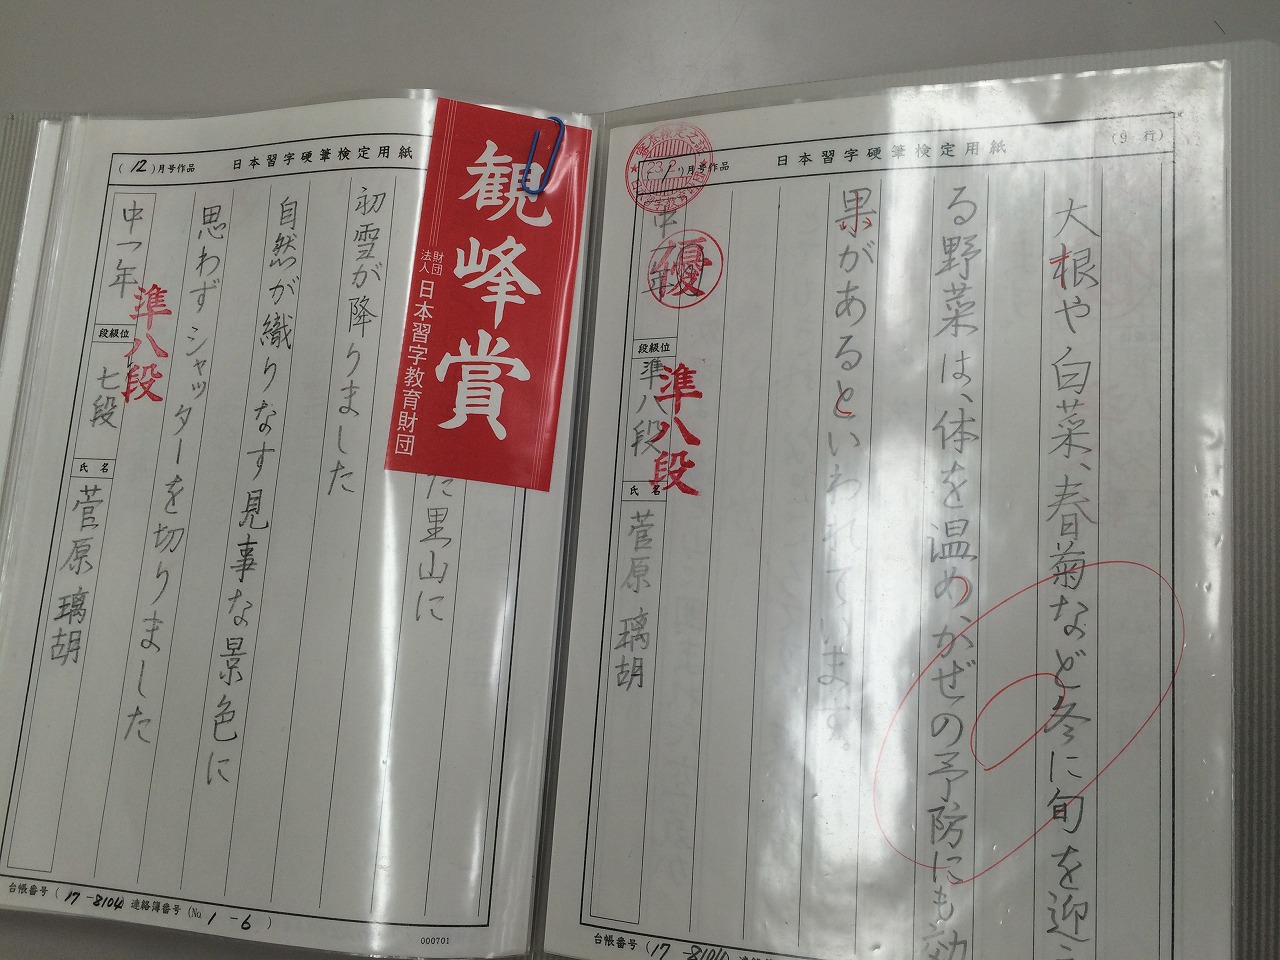 (12)月号作品
日本習字硬筆検定用紙
観峰賞
財団法人
日本習字教育財団
た里山に
初雪が降りました
自然が織りなす見事な景色に
思わずシャッターを切りました
中一年
準八段
段級位
七段
氏名
菅原璃胡
台帳番号(17-8104 連絡簿番号(No 1-6)
000701
月号作品
日本習字硬筆検定用紙
(9行)
大根や白菜、春菊など冬に旬を迎え
る野菜は、体を温めかぜの予防にも効
果があるといわれています。
中一年
優
段級位
準八段
準八段
氏名
菅原璃胡
台帳番号(17-8104